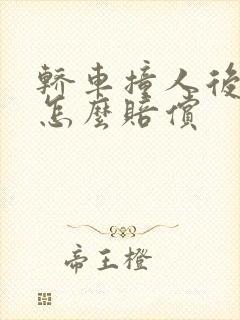 轎車撞人後
怎麼賠償
帝王橙